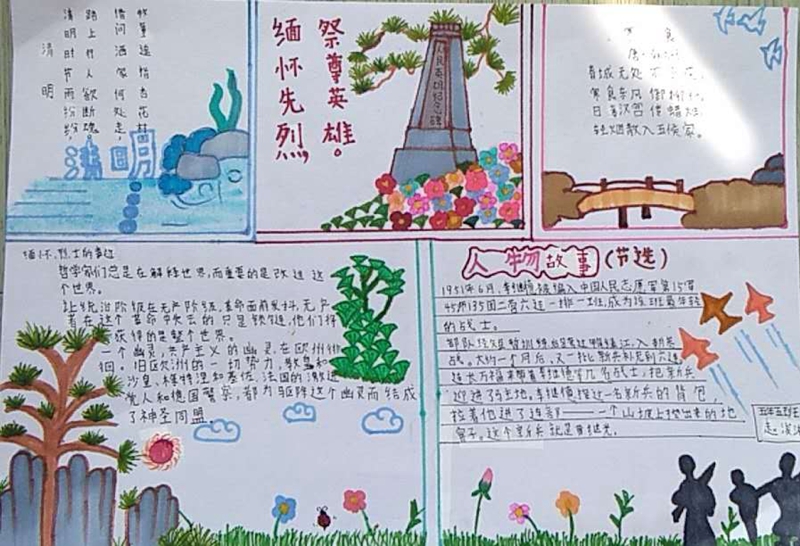 清明
清明时节雨纷纷，
路上行人欲断魂。
借问酒家何处
牧童遥指杏花村。
清明
缅怀先烈，
祭尊英雄。
人民英雄纪念碑
食
春城无处不飞花，
寒食东风御柳
日暮汉宫传蜡烛
轻烟散入五侯家。
缅怀烈士的事迹
哲学家们总是在解释世界，而重要的是改造这
个世界。
让统治阶级在无产阶级革命面前发抖，无产
者在这个革命中失去的只是锁链，他们将
获得的是整个世界。
一个幽灵，共产主义的幽灵，在欧洲徘
徊。旧欧洲的一切势力，教皇和
沙皇，梅特涅和基佐，法国的激进
党人和德国警察，都为驱除这个幽灵而结成
了神圣同盟
人物故事（节选）
1951年6月，李继德被编入中国人民志愿军第15军
45师135团二营六连一排一班，成为该班最年轻
的战士。
部队经过短暂训练后跨过鸭绿江，入朝
战。大约一个月后，又一批新兵补充到六连
连长万福来带着李继德等几名战士，把新兵
迎进3号坑地。李继德接过一名新兵的背包，
拉着他进了连部——一个山坡上挖出来的地
窖子。这个新兵就是黄继光。